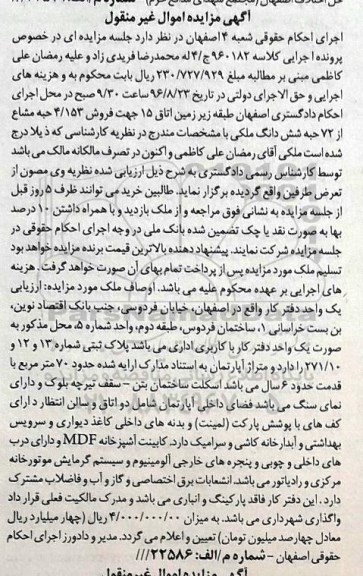 آگهی مزایده اموال غیر منقول
اجرای احکام حقوقی شعبه ۴ اصفهان در نظر دارد جلسه مزایده ای در خصوص
پرونده اجرایی کلاسه ۹۶۰۱۸۲ ج/۴ له محمدرضا فریدی زاد و علیه رمضان علی
کاظمی مبنی بر مطالبه مبلغ ۲۳۰/۷۲۷/۹۲۹ ریال بابت محکوم به و هزینه های
اجرایی و حق الاجرای دولتی در تاریخ ۹۶/۸/۲۳ ساعت ۹/۳۰ صبح در محل اجرای
احکام دادگستری اصفهان طبقه زیر زمین اتاق ۱۵ جهت فروش ۴/۱۵۳ حبه مشاع
از ۷۲ حبه شش دانگ ملکی با مشخصات مندرج در نظریه کارشناسی که ذیلا درج
شده است ملکی آقای رمضان علی کاظمی و اکنون در تصرف مالکانه مالک می باشد
توسط کارشناس رسمی دادگستری به شرح ذیل ارزیابی شده نظریه وی مصون از
تعرض طرفین واقع گردیده برگزار نماید. طالبین خرید می توانند ظرف ۵ روز قبل
از جلسه مزایده به نشانی فوق مراجعه و از ملک بازدید و با همراه داشتن ۱۰ درصد
بها به صورت نقد یا چک تضمین شده بانک ملی در وجه اجرای احکام حقوقی در
جلسه مزایده شرکت نمایند. پیشنهاد دهنده بالاترین قیمت برنده مزایده خواهد بود
تسلیم ملک مورد مزایده پس از پرداخت تمام بهای آن صورت خواهد گرفت. هزینه
های اجرایی بر عهده محکوم علیه می باشد. اوصاف ملک مورد مزایده: ارزیابی
یک واحد دفتر کار واقع در اصفهان، خیابان فردوسی، جنب بانک اقتصاد نوین،
بن بست خراسانی ۱، ساختمان فردوس، طبقه دوم، واحد شماره ۵، محل مذکور به
صورت یک واحد دفتر کار با کاربری اداری می باشد پلاک ثبتی شماره ۱۳ و ۱۲ و
۱۲۷۱/۱۰ را دارد و متراژ آپارتمان به استناد مدارک ارایه شده حدود ۷۰ متر مربع با
قدمت حدود ۶ سال می باشد اسکلت ساختمان بتن – سقف تیرچه بلوک و دارای
نمای سنگ می باشد فضای داخلی آپارتمان شامل دو اتاق و سالن انتظار دارای
کف های با پوشش پارکت (لمینت) و بدنه های داخلی کاغذ دیواری و سرویس
بهداشتی و آبدارخانه کاشی و سرامیک دارد. کابینت آشپزخانه MDF و دارای درب
های داخلی و چوبی و پنجره های خارجی آلومینیوم و سیستم گرمایش موتورخانه
مرکزی و رادیاتور می باشد. انشعابات برق اختصاصی و گاز و آب و فاضلاب مشترک
دارد. این دفتر کار فاقد پارکینگ و انباری می باشد و مدرک مالکیت فعلی قرار داد
واگذاری شهرداری می باشد. به میزان ۴/۰۰۰/۰۰۰/۰۰ ریال (چهار میلیارد ریال
معادل چهارصد میلیون تومان) تعیین و اعلام می گردد. مدیر و دادورز اجرای احکام
حقوقی اصفهان – شماره م/الف: ۲۲۵۸۶///
آگهی مزایده اموال غیر منقول